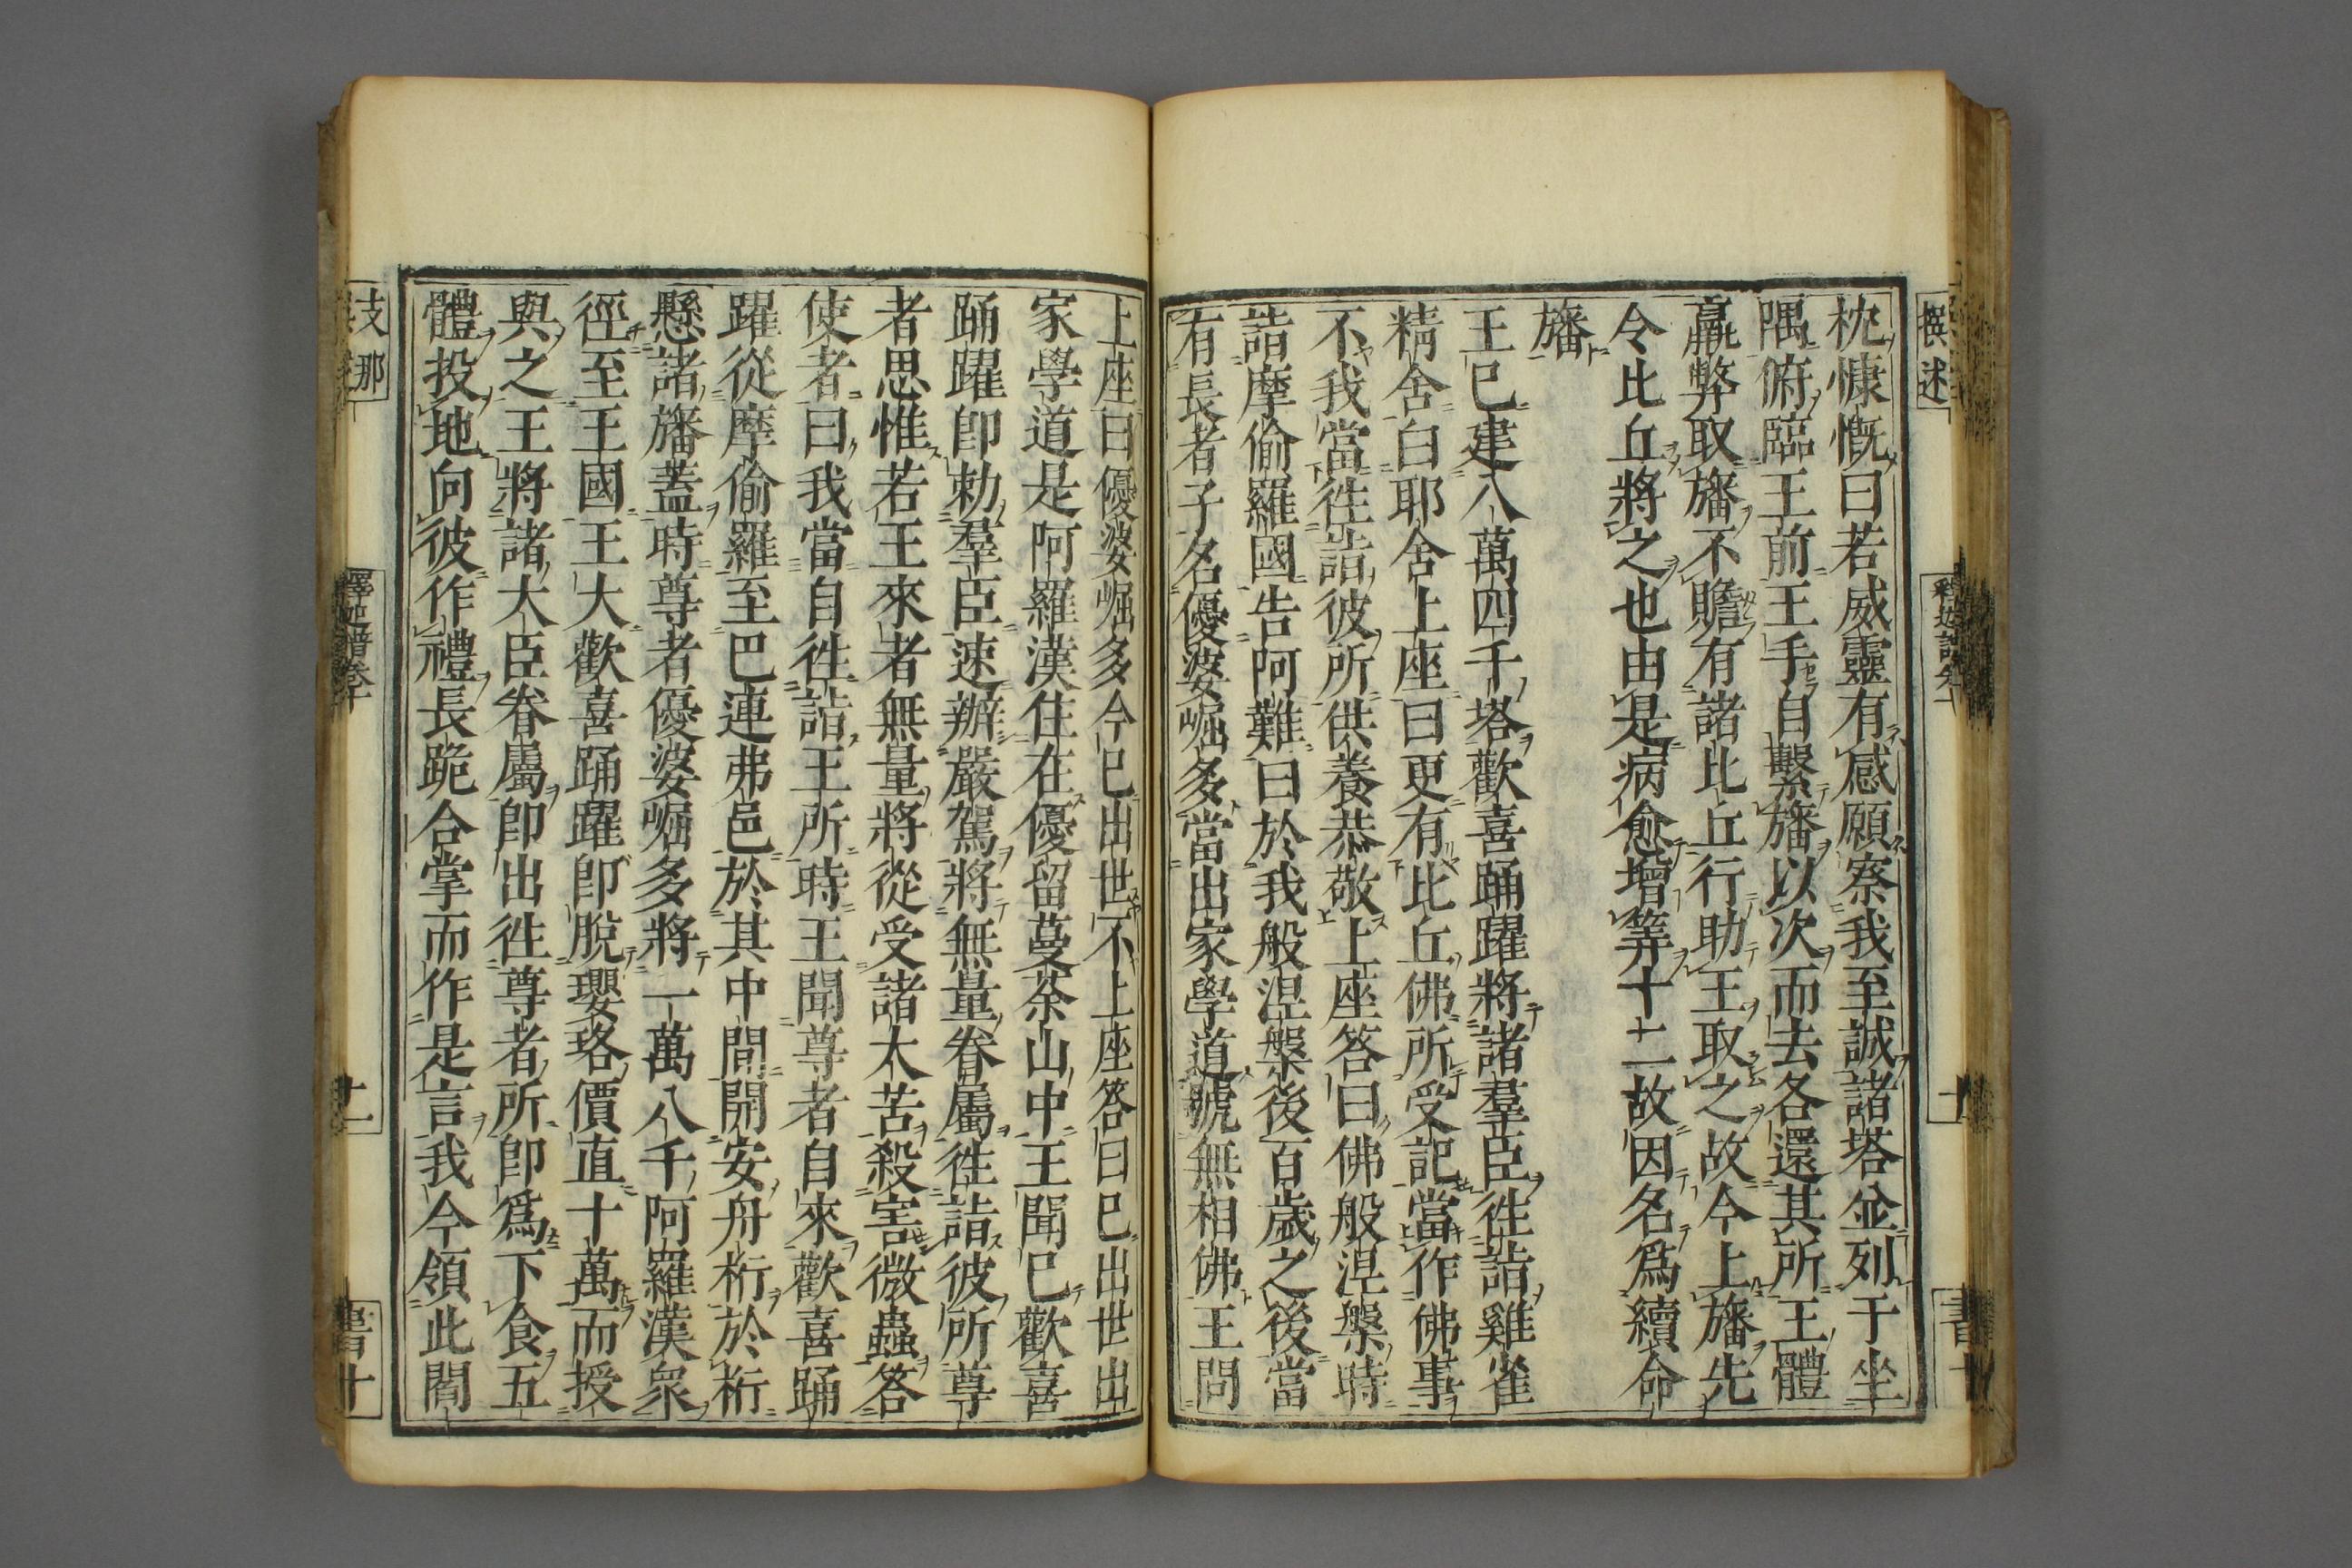 撰述
釋迦譜卷十
枕慷慨曰若威靈有感願察我至誠諸塔並列于坐
隅俯臨王前王手自繫旛以次而去各還其所王體
羸弊取旛不贍有諸比丘行助王取之故今上旛先
令比丘將之也由是病愈增筭十二故因名爲續命
旛
王已建八萬四千塔歡喜踊躍將諸羣臣徃詣雞雀
精舍白耶舍上座曰更有比丘佛所受記當作佛事
不我當徃詣彼所供養恭敬上座答曰佛般涅槃時
詣摩偷羅國告阿難曰於我般涅槃後百歲之後當
有長者子名優婆崛多當出家學道號無相佛王問
上座曰優婆崛多今已出世不上座答曰已出世出
家學道是阿羅漢住在優留蔓荼山中王聞已歡喜
踊躍卽勅羣臣速辦嚴駕將無量眷屬徃詣彼所尊
者思惟若王來者無量將從受諸大苦殺害微蟲答
使者曰我當自徃詣王所時王聞尊者自來歡喜踊
躍從摩偷羅至巴連弗邑於其中間開安舟桁於桁
懸諸旛蓋時尊者優婆崛多將一萬八千阿羅漢衆
徑至王國王大歡喜踊躍卽脫瓔珞價直十萬而授
與之王將諸大臣眷屬卽出徃尊者所卽爲下食五
體投地向彼作禮長跪合掌而作是言我今領此閻
支那
釋迦譜卷十
十一
書十